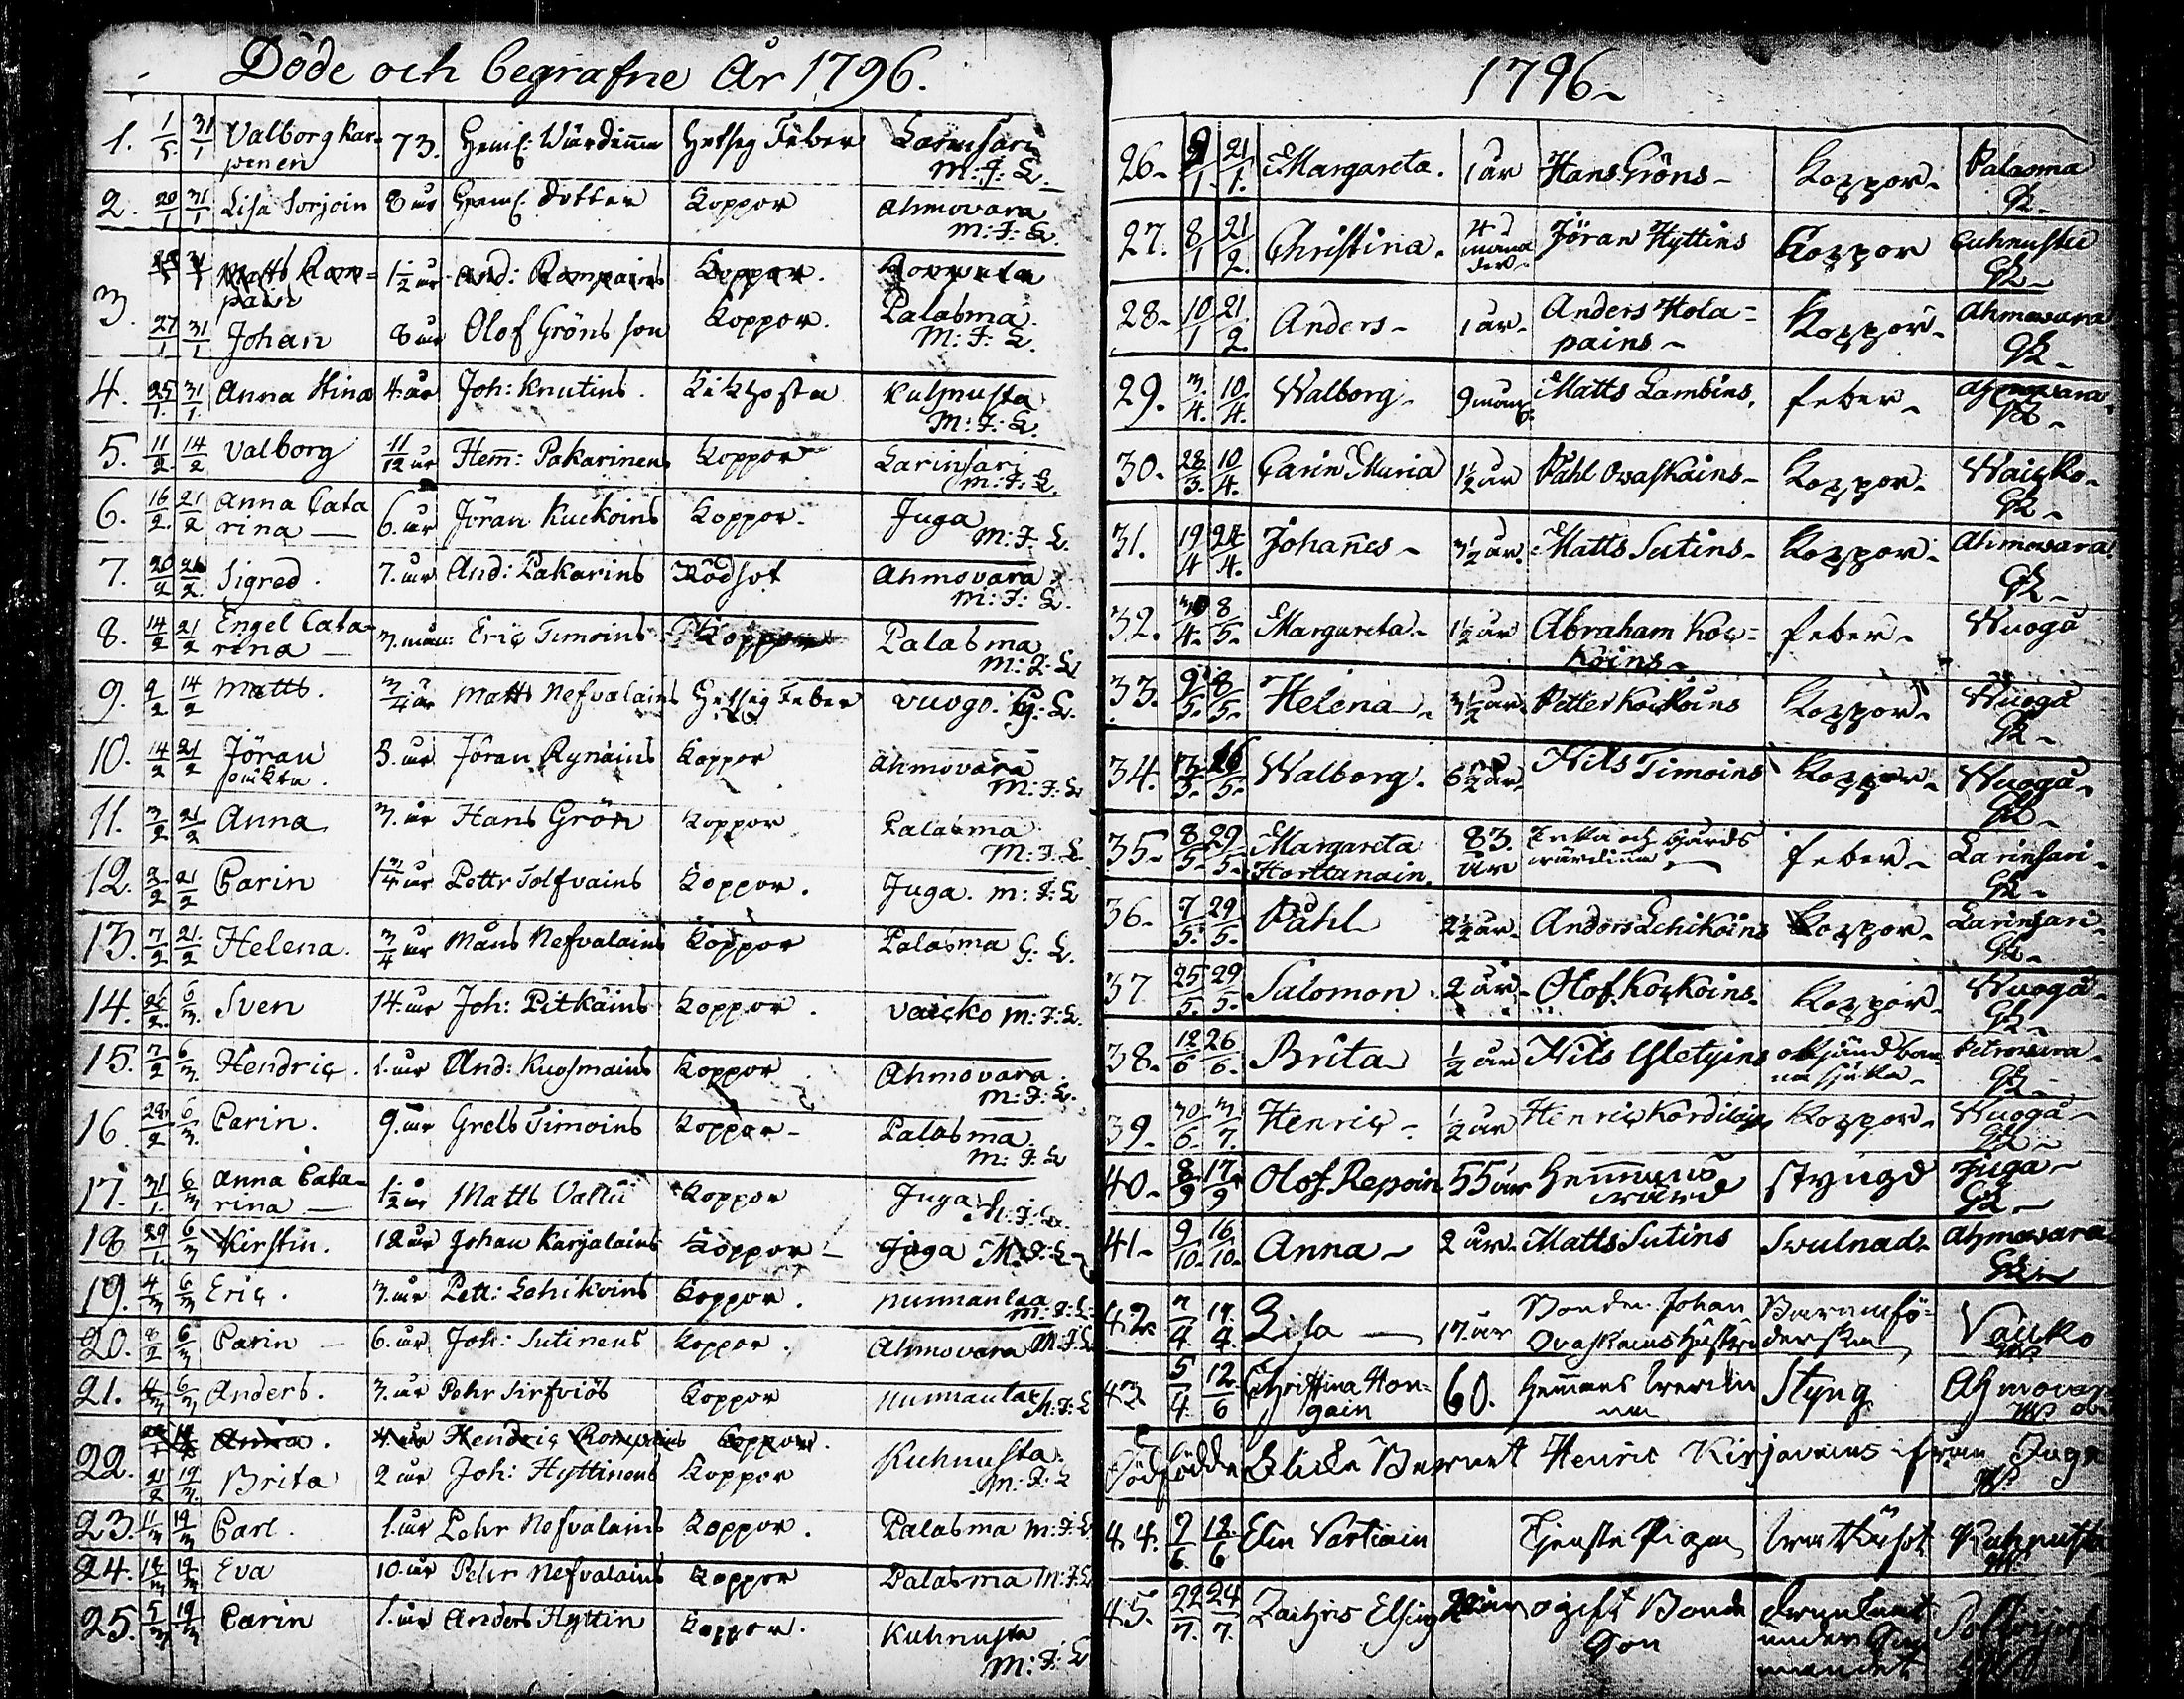 Döde och begrafne År 1796.
1. 1/5. 31/1 Valborg Kar-
penen 73. Hem: Wärdinna Hetsig Feber Larinsari
M: F: L.
2. 20/1 31/1 Lisa Sorjoin 8 år Hem: dotter Koppor Ahmovara
M: F: L.
3. Matts Ram-
pain 1 1/2 år And: Rampains Koppor.
27/1 31/1 Johan 8 år Olof Gröns son Koppor. Palasma
M: F: L.
4. 25/1. 31/1. Anna Stina 4. år Joh: Knutins. Kikhosta Kuhnusta
M: F: L.
5. 11/2. 14/2 Valborg 11/12 år Hem: Pakarinens Koppor Larinsari
M: F: L.
6. 16/2. 21/2 Anna Cata
rina 6. år Jöran Kuckoins Koppor. Juga
M: F: L.
7. 20/2 21/2. Sigred. 7. år And: Pakarins Rödsot Ahmovara
M: F: L.
8. 14/2 21/2 Engel Cata-
rina 3. mån: Eric Timoins Koppor Palasma
M: F: L
9. 9/2 14/2 Matts. 3/4 år Matts Nefvalains Hetsig Feber Vuogo. G: L.
10. 14/2 21/2 Jöran 3. år Jöran Rynäins Koppor Ahmovara
M: F: L
11. 3/2 21/2 Anna 3. år Hans Grön Koppor Palasma
M: F: L
12. 3/2 21/2 Carin 1 3/4 år Pettr Tolfvains Koppor. Juga. M: F: L
13. 7/2 21/2 Helena. 3/4 år Måns Nefvalains Koppor Palasma G: L.
14. 26/2. 6/3. Sven 14. år Joh: Pitkäins Koppor. Vaicko M: F: L.
15. 7/2 6/3. Hendric. 1. år And: Kuosmains Koppor Ahmovara.
M: F: L.
16. 28/2 6/3. Carin. 9. år Grels Timoins Koppor- Palasma
M: F: L
17. 31/1. 6/3 Anna Cata-
rina 1 1/2 år Matts Vallii Koppor Juga M: F: L.
18 29/1. 6/3 Kirstin. 12 år Johan Karjalains Koppor Juga M: F: L
19. 4/3 6/3 Eric. 3. år Pett: Lehikoins Koppor. Nunnanlax
M: F: L
20. 8/2 6/3 Carin 6. år Joh: Sutinens Koppor. Ahmovara M: F: L
21. 4/3 6/3 Anders. 3. år Pehr Sirfviös Koppor Nunnanlax M: F: L
22. Anna. 4. år Hendric Rompains Koppor.
21/2 19/3. Brita 2 år Joh: Hyttinens Koppor Kuhnusta
M: F: L
23. 11/3 19/3 Carl. 1. år Pehr Nefvalains Koppor. Palasma M: F: L
24. 14/3 19/3 Eva 10. år Pehr Nefvalains Koppor Palasma M: F: L
25. 5/3 19/3 Carin 1. år Anders Hyttin Koppor. Kuhnusta
M: F: L
1796
26- 21/1. Margareta. 1 år Hans Gröns- Koppor- Palasma
27. 8/1 21/2. Christina. 4 måna
der Jöran Hyttins Koppor Cuhnusta
28- 10/1 21/2. Anders- 1 år- Anders Hola=
pains- Koppor- Ahmovara
29. 3/4. 10/4. Walborg- 9 mån: Matts Lambins, feber- Ahmovara
30. 28/3. 10/4. Carin Maria 1 1/2 år Påhl Ovaskains- Koppor- Waicko-
31. 19/4 24/4. Johannes- 3 1/2 år. Matts Sutins- Koppor- Ahmovara
32. 30/4- 8/5- Margareta- 1 1/2 år Abraham Koc-
koins- feber- Wuogå
33. 8/5- Helena- 3 1/2 år Petter Kockoins Koppor- Wuogå
34. 26/5- Walborg. 6 1/2 år- Nils Timoins Koppor- Wuogå-
35- 8/5- 29/5- Margareta
Horttanain. 83.
år Enka och Gårds
värdinna feber- Larinsari-
36- 7/5- 29/5- Påhl 2 1/2 år- Anders Lehikoins Koppor- Larinsari-
37 25/5. 29/5- Salomon 2 år- Olof Kockoins- Koppor- Wuogå-
38- 12/6 26/6- Brita 1/2 år Nils Gletyins okänd bar-
na sjuka- Petrovara-
39- 30/6- 3/7. Henric- 1/2 år Henric Kordilain Koppor- Wuogå-
40- 8/9 17/9 Olof Repoin 55 år Hemmans
värd styngd Juga-
41- 9/10- 16/10- Anna- 2 år- Matts Sutins Svulnad- Ahmovara
42. 7/4. 17/4. Lisa 17. år Bonden Johan
Ovaskains hustru Barnsfö=
derskan Vaicko
43 5/4. 12/6 Christina Hon-
gain 60. Hemmans werdin
na Styng Ahmovara
Dödfödde Flicke Barnet Henric Kirjavains ifrån Juga
44. 9/6. 12/6 Elin Vartiain Tjenste Pigan Kuhnusta
45. 22/7. 24/7. Zachris Elsing 20 år ogift Bonde
Son